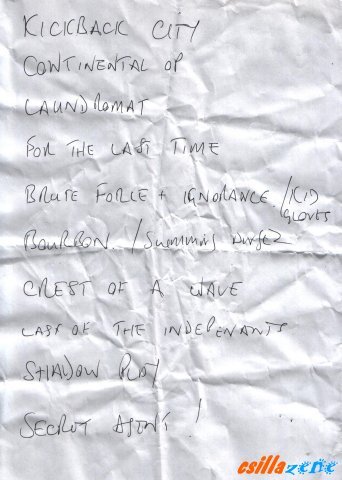 KICKBACK CITY
CONTINENTAL OP
LAUNDROMAT
FOR THE LAST TIME
BRUTE FORCE + IGNORANCE. / KID
GLOVES
BOURBON. /
CREST OF A WAVE
LAST OF THE INDEPENANTS
SHADOW PLAY
SECRET AGENT !
csillazene